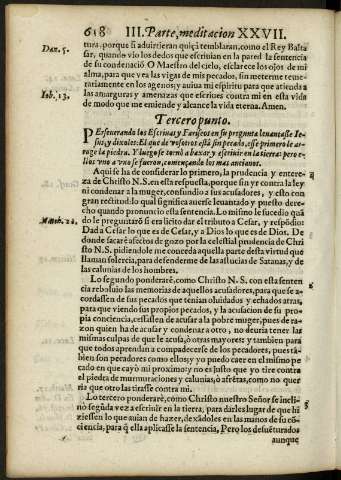 618 III. Parte, meditacion XXVII.
Dan. 5. tura, porque si aduirtieran quiça temblaran, como el Rey Balta
sar, quando vio los dedos que escriuian en la pared la sentencia
de su condenació. O Maestro del cielo, esclarece los ojos de mi
alma, para que vea las vigas de mis pecados, sin meterme teme-
rariamente en los agenos; y auiua mi espiritu para que atienda a
Iob. 13. las amarguras y amenazas que escriues contra mi en esta vida
de modo que me emiende y alcance la vida eterna. Amen.
Tercero punto.
PErseuerando los Escriuas y Fariseos en su pregunta leuantasse Ie-
sus, y dixoles: El que de vosotros está sin pecado, esse primero le ar-
roge la piedra. Y luego se tornò a baxar y escriuir en la tierra: pero e-
llos vno a vno se fueron, començando los mas ancianos.
Aqui se ha de considerar lo primero, la prudencia y entere-
za de Christo N. S. en esta respuesta, porque sin yr contra la ley
ni condenar a la muger, confundio a sus acusadores, y esto con
gran rectitud: lo qual significa auerse leuantado y puesto dere-
cho quando pronuncio esta sentencia. Lo mismo le sucedio quã
Matth. 22. do le preguntarõ si era licito dar el tributo a Cesar, y respõdio:
Dad a Cesar lo que es de Cesar, y a Dios lo que es de Dios. De
donde sacarè afectos de gozo por la celestial prudencia de Chri
sto N. S. pidiendole me conceda aquella parte desta virtud que
llaman solercia, para defenderme de las astucias de Satanas, y de
las calunias de los hombres.
Lo segundo ponderarè, como Christo N. S. con esta senten
cia reboluio las memorias de aquellos acusadores, para que se a-
cordassen de sus pecados que tenian oluidados y echados atras,
para que viendo sus propios pecados, y la acusacion de su pro
pia conciencia, cessassen de acusar a la pobre muger, pues de ra-
zon quien ha de acusar y condenar a otro, no deuria tener las
mismas culpas de que le acusa, ò otras mayores: y tambien para
que todos aprendan a compadecerse de los pecadores, pues tã-
bien son pecadores como ellos; y yo puedo caer en el mismo pe
cado en que cayò mi proximo: y no es justo que yo tire contra
el piedra de murmuraciones y calunias, ò afrētas, como no quer
ria que otro las tirasse contra mi.
Lo tercero ponderarè, como Christo nuestro Señor se incli-
nò segũda vez a escriuir en la tierra, para dirles lugar de que hi
ziessen lo que auian de hazer, dexãdolos en las manos de su cõ-
ciencia, para q̃ ella aplicasse la sentencia, Pero los desuēturados
aunque